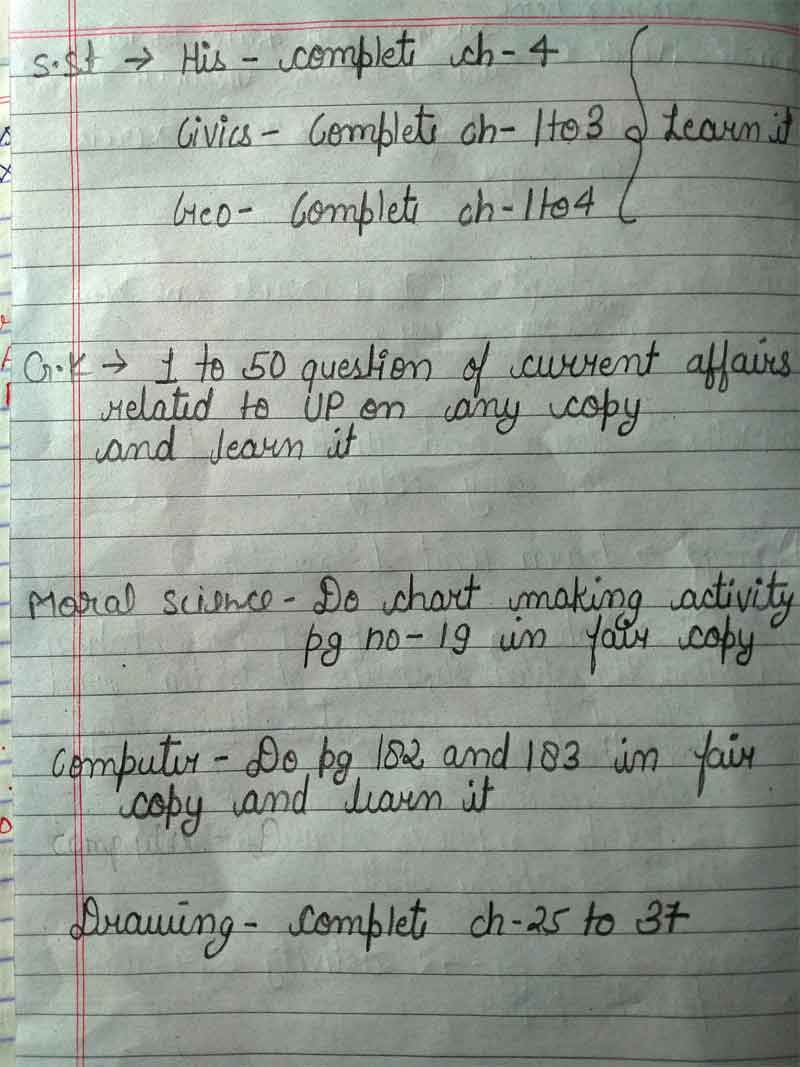 S.St → His - complete ch-4
Civics - Complete ch-1to3 } Learn it
Geo - Complete ch-1to4
G.K → 1 to 50 question of current affairs
related to UP on any copy
and learn it
Moral science - Do chart making activity
pg no-19 in fair copy
Computer - Do pg 182 and 183 in fair
copy and learn it
Drawing - complete ch-25 to 37